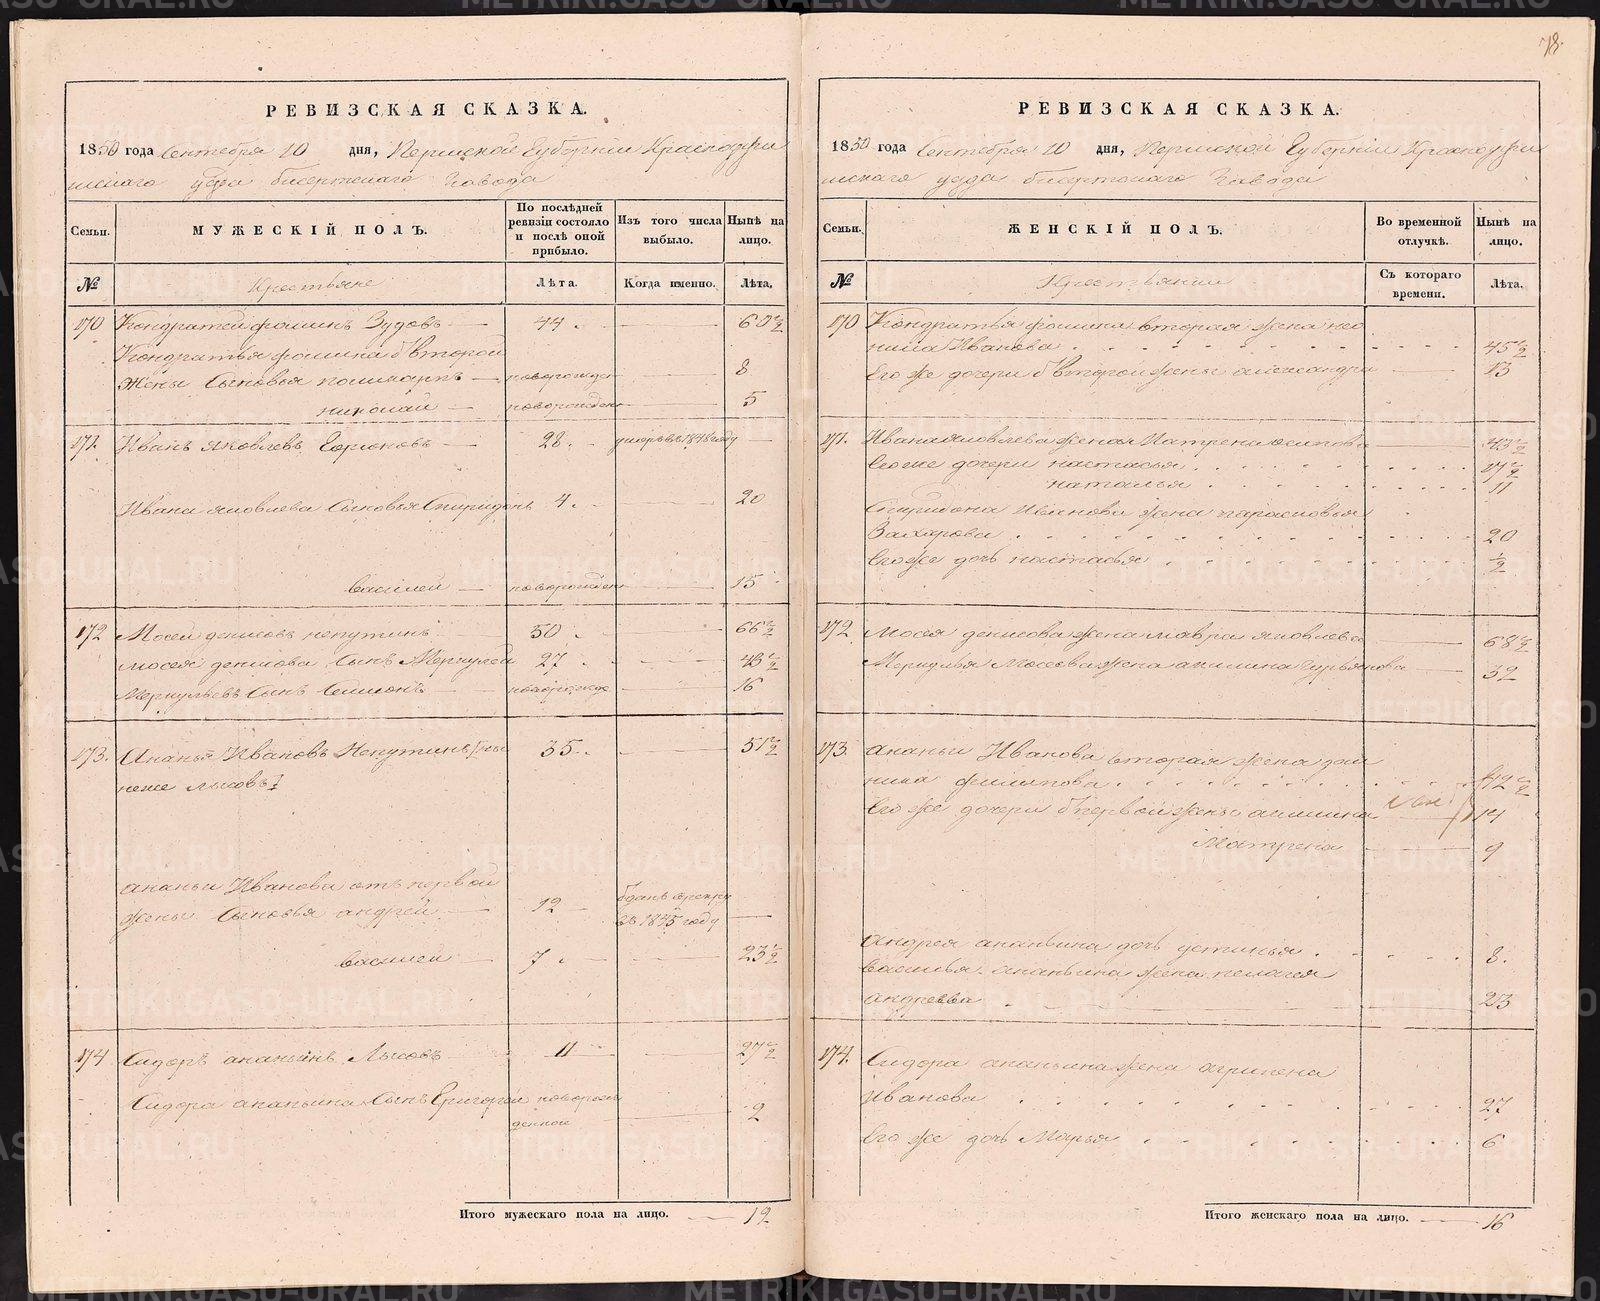 78.
РЕВИЗСКАЯ СКАЗКА.
1850 года Сентября 10 дня, Пермской Губернiи Красноуфи
мскаго уезда бисертскаго Завода
Семьи.
МУЖЕСКIЙ ПОЛЪ.
По послѣдней ревизiи состояло и послѣ оной прибыло.
Изъ того числа выбыло.
Нынѣ на лицо.
№
Крестьяне
Лѣта.
Когда именно.
Лѣта.
170 Кондратей фоминъ Зудовъ 44. 60 1/2
Кондратья фомина б второй
жены Сыновья поликарпъ новорожден 8
николай новорожден 5
171. Иванъ яковлевъ Горюновъ 28. умеръ въ 1848 году
Ивана яковлева Сыновья Спиридонъ 4. 20
василей новорожден 15
172 Мосей денисовъ непутинъ 50. 66 1/2
мосея денисова Сынъ Меркулей 27. 43 1/2
Меркульевъ Сынъ Семионъ новорожде 16
173. Ананья Ивановъ Непутинъ [ны 35. 51 1/2
неже лысовъ]
ананьи Иванова отъ первой
жены Сыновья андрей 12 въ 1845 году
василей 7. 23 1/2
174 Сидоръ ананьинъ Лысовъ 11 27 1/2
Сидора ананьина Сынъ Григорей новорож
денной 2
Итого мужескаго пола на лицо. 12
РЕВИЗСКАЯ СКАЗКА.
1850 года Сентября 10 дня, Пермской Губернiи Красноуфи
мскаго уезда бисертскаго Завода
Семьи.
ЖЕНСКIЙ ПОЛЪ.
Во временной отлучкѣ.
Нынѣ на лицо.
№
Крестьянки
Съ котораго времени.
Лѣта.
170 Кондратья фомина вторая жена нео
нила Иванова 45 1/2
Его же дочери б второй жены александра 13
171. Ивана яковлева жена Матрена осипова 43 1/2
Его же дочери настасья 17 1/2
наталья 11
Спиридона Иванова жена парасковья
Захарова 20
Его же дочь настасья 1/2
172 мосея денисова жена мавра яковлева 68 1/2
Меркулья Мосеева жена акилина гурьянова 32
173. ананьи Иванова вторая жена дом
ника филипова 42 1/2
Его же дочери б первой жены акилина 14
Матрена 9
Андрея ананьина дочь устинья 8.
василья ананьина жена пелагея
андреева 23
174. Сидора ананьина жена агрипена
Иванова 27
Его же дочь Марья 6
Итого женскаго пола на лицо. 16
METRIKI.GASO-URAL.RU